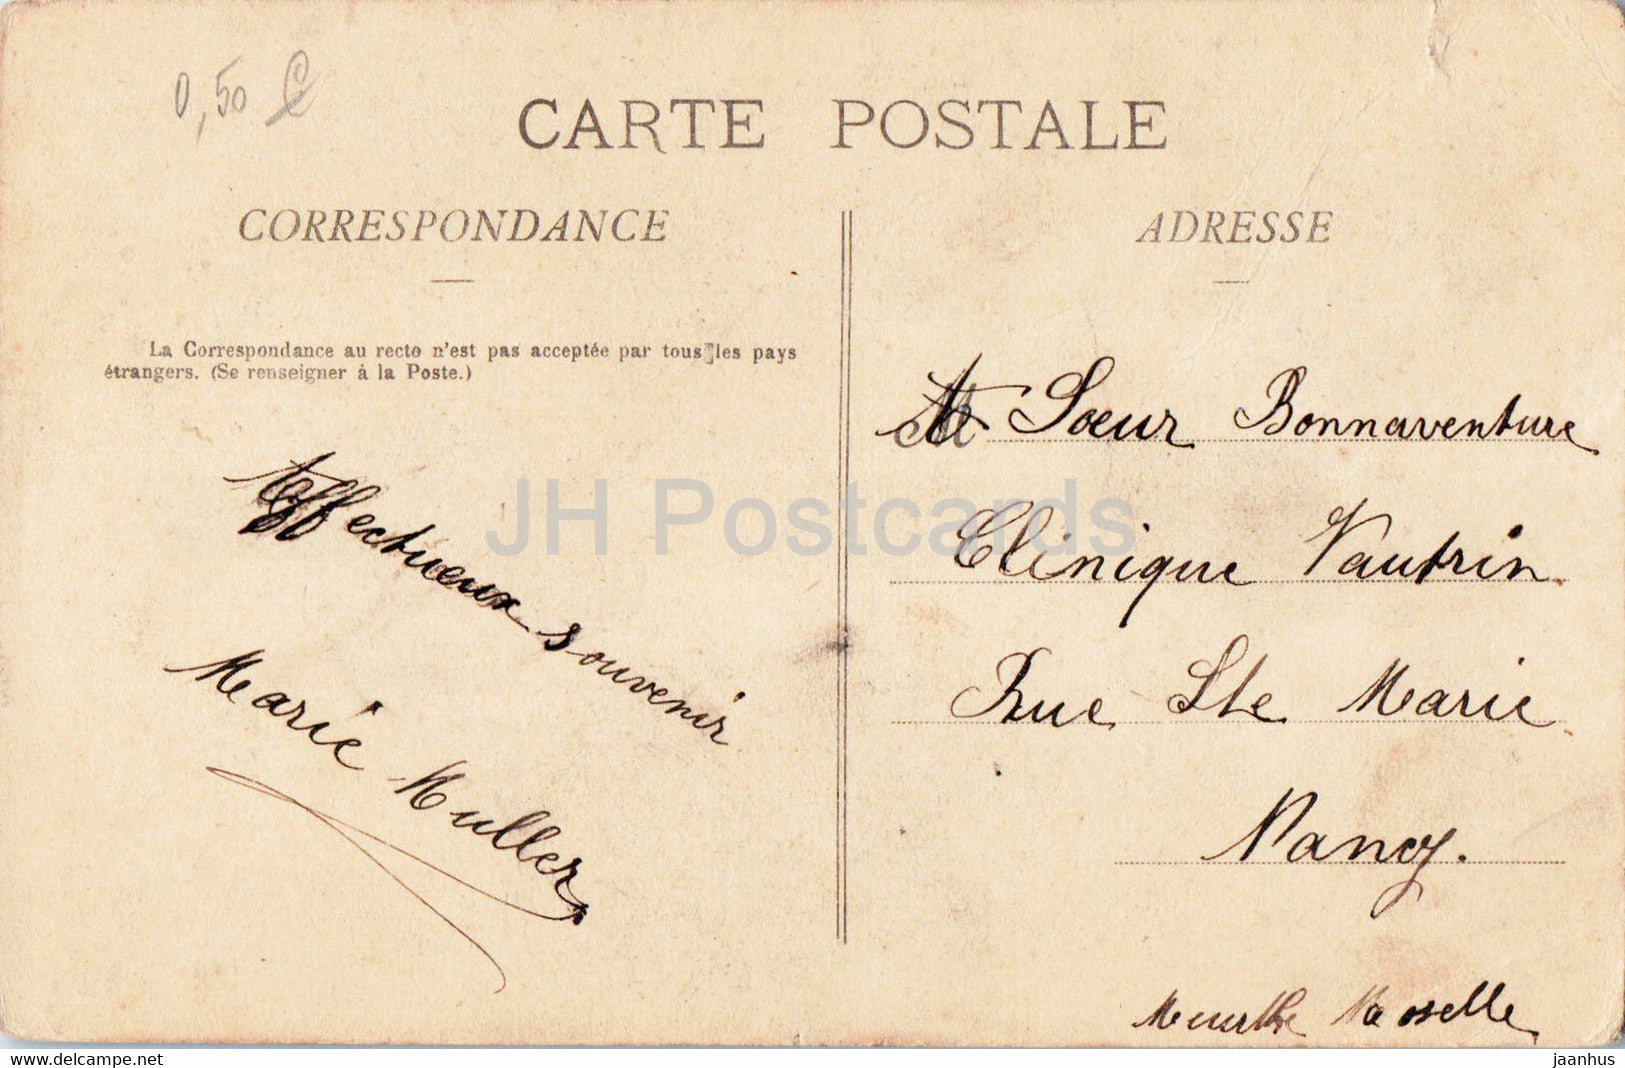 0,50 €
CARTE POSTALE
CORRESPONDANCE
La Correspondance au recto n'est pas acceptée par tous les pays
étrangers. (Se renseigner à la Poste.)
Affectueux souvenir
Marie Muller
ADRESSE
Soeur Bonnaventure
Clinique Vautrin
Rue Ste Marie
Nancy.
Meurthe Moselle
JH Postcards
www.delcampe.net
jaanhus